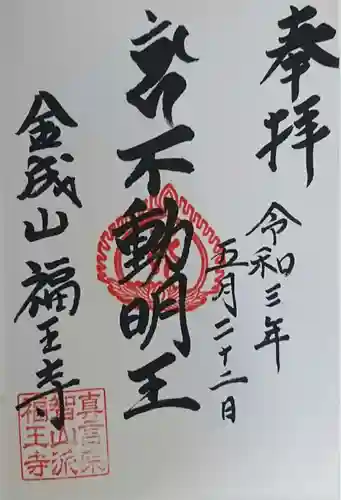 奉拝
令和三年
五月二十二日
不動明王
金成山 福王寺
真言宗
智山派
福王寺